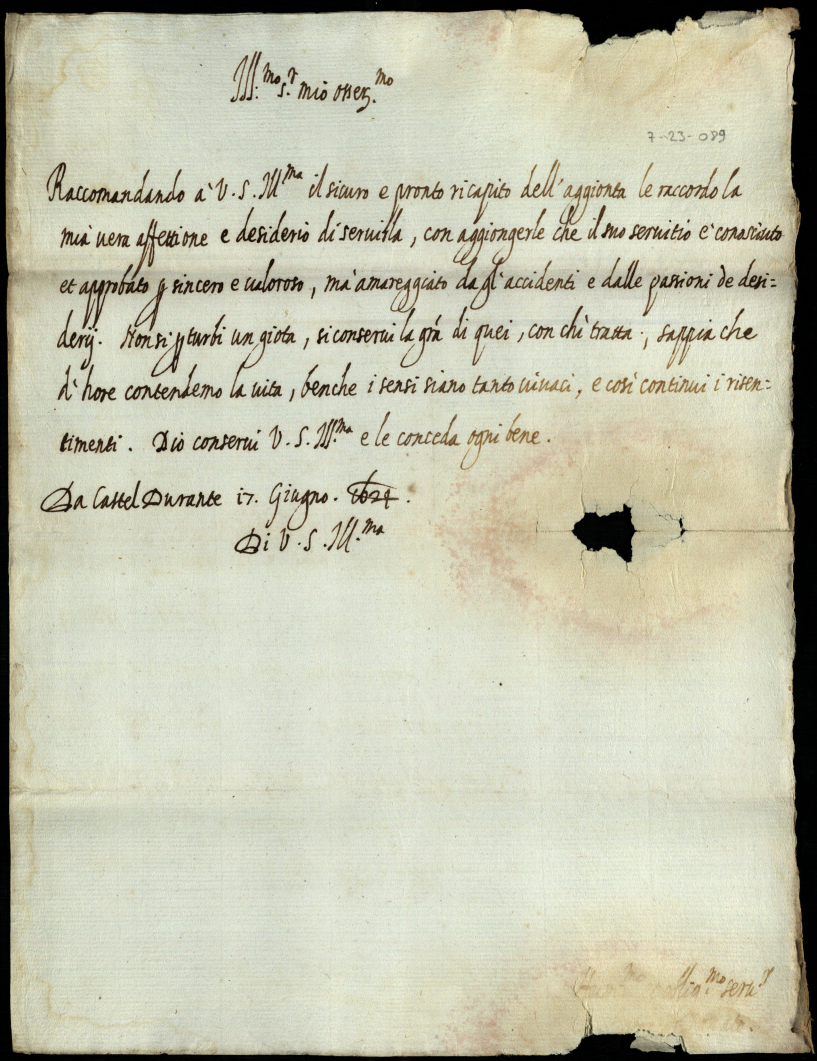 Ill:mo S.r mio osser.mo
7-23-089
Raccomandando à V. S. Ill.ma il sicuro e pronto ricapito dell'aggionta le raccordo la
mià vera affettione e desiderio di servirla, con aggiongerle che il suo servitio è conosciuto
et approbato p sincero e valoroso, mà amareggiato da gl'accidenti e dalle passioni de desi=
derij. Non si pturbi un giota, si conservi la grà di quei, con chi tratta, sappia che
d'hore contendemo la vita, benche i sensi siano tanto vivaci, e così continui i risen=
timenti. Dio conservi V. S. Ill.ma e le conceda ogni bene.
Da Castel Durante 17. Giugno. 1624.
Di V. S. Ill.ma
oblig.mo ser.r